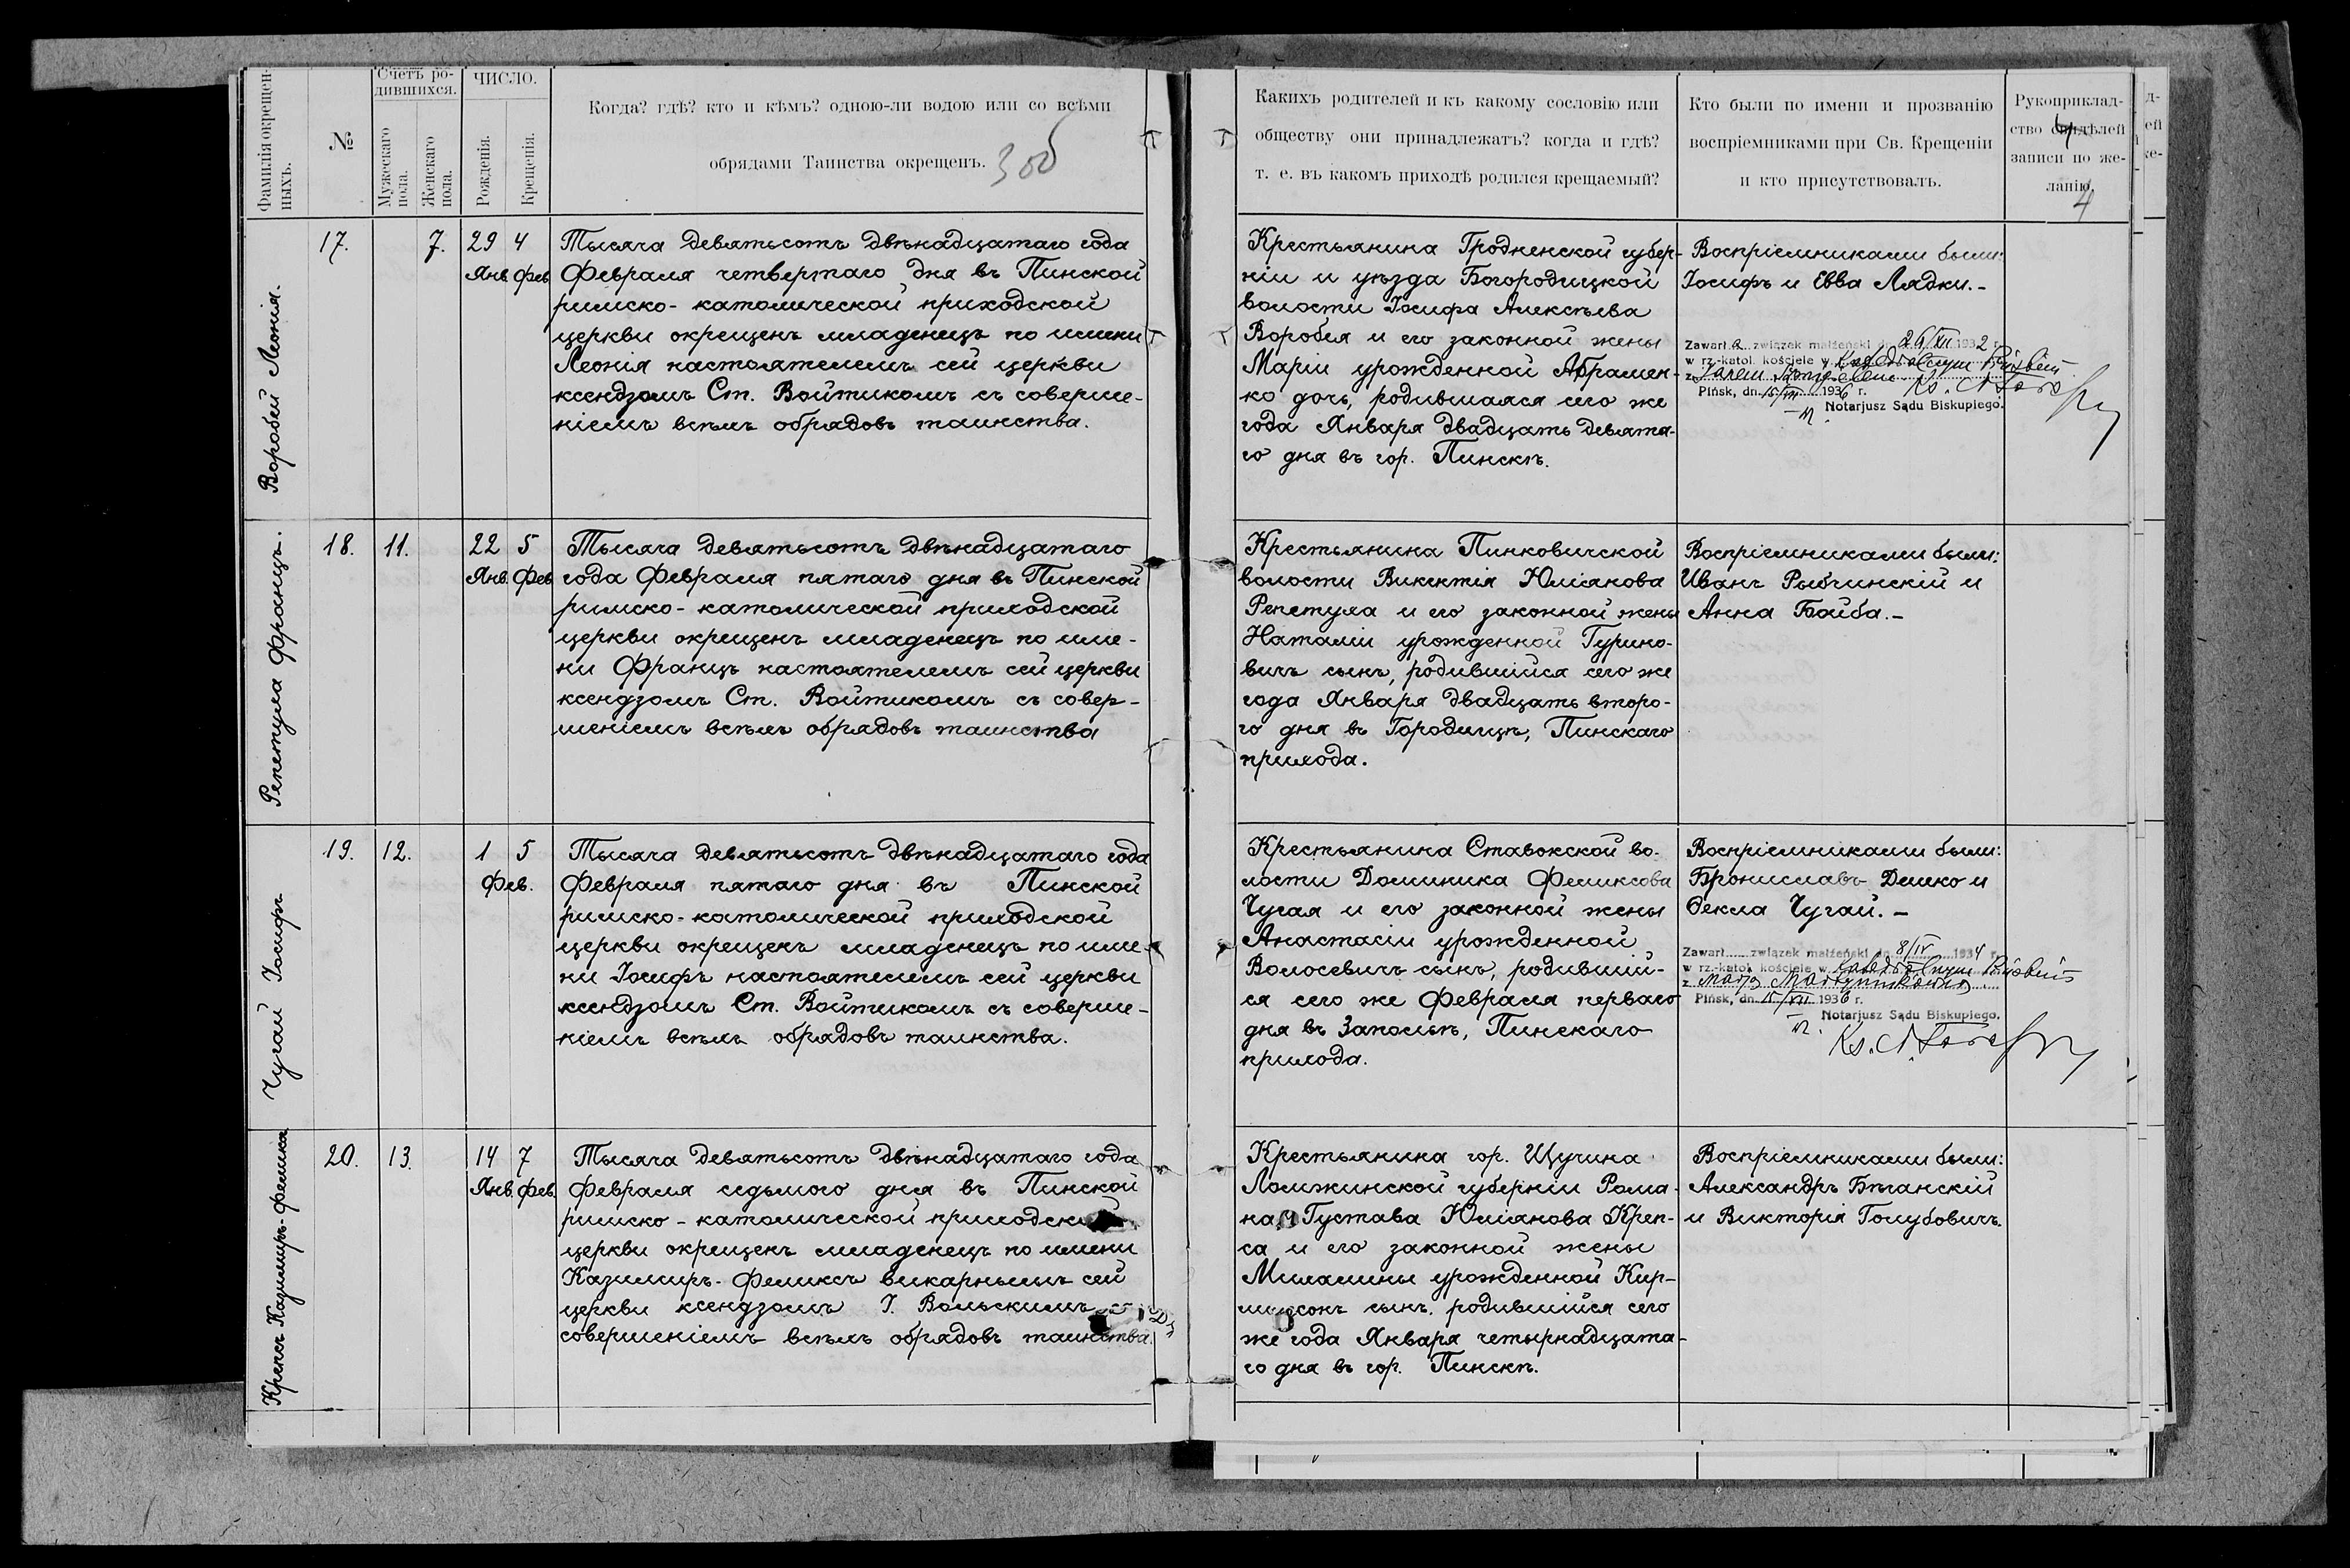 Фамилія окрещен-
ныхъ.
№
Счетъ ро-
дившихся.
Мужескаго
пола.
Женскаго
пола.
ЧИСЛО.
Рожденія.
Крещенія.
Когда? гдѣ? кто и кѣмъ? одною-ли водою или со всѣми
обрядами Таинства окрещенъ.
Воробей Леонія.
17.
7.
29 4
Янв. Фев.
Тысяча девятьсотъ двѣнадцатаго года
Февраля четвертаго дня въ Пинской
римско-католической приходской
церкви окрещенъ младенецъ по имени
Леонія настоятелемъ сей церкви
ксендзомъ Ст. Войтикомъ съ соверше-
ніемъ всѣхъ обрядовъ таинства.
Репетула Францъ.
18.
11.
22 5
Янв. Фев.
Тысяча девятьсотъ двѣнадцатаго
года Февраля пятаго дня въ Пинской
римско-католической приходской
церкви окрещенъ младенецъ по име-
ни Францъ настоятелемъ сей церкви
ксендзомъ Ст. Войтикомъ съ совер-
шеніемъ всѣхъ обрядовъ таинства
Чугай Іосифъ
19.
12.
1 5
Фев.
Тысяча девятьсотъ двѣнадцатаго года
Февраля пятаго дня въ Пинской
римско-католической приходской
церкви окрещенъ младенецъ по име-
ни Іосифъ настоятелемъ сей церкви
ксендзомъ Ст. Войтикомъ съ соверше-
ніемъ всѣхъ обрядовъ таинства.
Крепсъ Казимиръ-Феликсъ
20.
13.
14 7
Янв. Фев.
Тысяча девятьсотъ двѣнадцатаго года
Февраля седьмого дня въ Пинской
римско-католической приходской
церкви окрещенъ младенецъ по имени
Казимиръ-Феликсъ викарнымъ сей
церкви ксендзомъ І. Вольскимъ съ
совершеніемъ всѣхъ обрядовъ таинства.
Какихъ родителей и къ какому сословію или
обществу они принадлежатъ? когда и гдѣ?
т. е. въ какомъ приходѣ родился крещаемый?
Кто были по имени и прозванію
воспріемниками при Св. Крещеніи
и кто присутствовалъ.
Рукоприклад-
ство свидѣлей
записи по же-
ланію.
4
Крестьянина Гродненской губер-
ніи и уѣзда Богородицкой
волости Іосифа Алексѣева
Воробея и его законной жены
Маріи урожденной Абрамен-
ко дочь, родившаяся сего же
года Января двадцать девята-
го дня въ гор. Пинскѣ.
Воспріемниками были:
Іосифъ и Евва Лядки.-
Zawarła związek małżeński dn. 26/XII 1932 r.
w rz.-katol. kościele w Katedralnym Pińskim
z Janem
Pińsk, dn. 15/VII 1936 r.
Notarjusz Sądu Biskupiego.
Крестьянина Пинковичской
волости Викентія Юліанова
Репетула и его законной жены
Наталіи урожденной Гурино-
вичъ сынъ, родившійся сего же
года Января двадцать второ-
го дня въ Городищѣ, Пинскаго
прихода.
Воспріемниками были:
Иванъ Рыбчинскій и
Анна Байба.-
Крестьянина Ставокской во-
лости Доминика Феликсова
Чугая и его законной жены
Анастасіи урожденной
Волосевичъ сынъ, родившій-
ся сего же Февраля перваго
дня въ Запольѣ, Пинскаго
прихода.
Воспріемниками были:
Брониславъ Дешко и
Ѳекла Чугай.-
Zawarł związek małżeński dn. 8/IV 1934 r.
w rz.-katol. kościele w Katedralnym Pińskim
z Marją
Pińsk, dn. 15/VII 1936 r.
Notarjusz Sądu Biskupiego.
Крестьянина гор. Щучина
Ломжинской губерніи Рома-
на Густава Юліанова Креп-
са и его законной жены
Миламины урожденной Кир-
сынъ, родившійся сего
же года Января четырнадцата-
го дня въ гор. Пинскѣ.
Воспріемниками были:
Александръ Бѣганскій
и Викторія Голубовичъ.